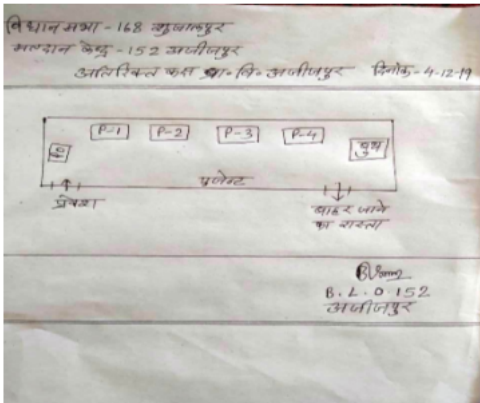 विधान सभा - 168 शुजालपुर
मतदान केन्द्र - 152 अजीजपुर
अतिरिक्त कक्ष प्रा. वि. अजीजपुर दिनांक - 4-12-19
P-1 P-2 P-3 P-4
बुथ
एजेन्ट
प्रवेश
बाहर जाने
का रास्ता
B. L. O. 152
अजीजपुर